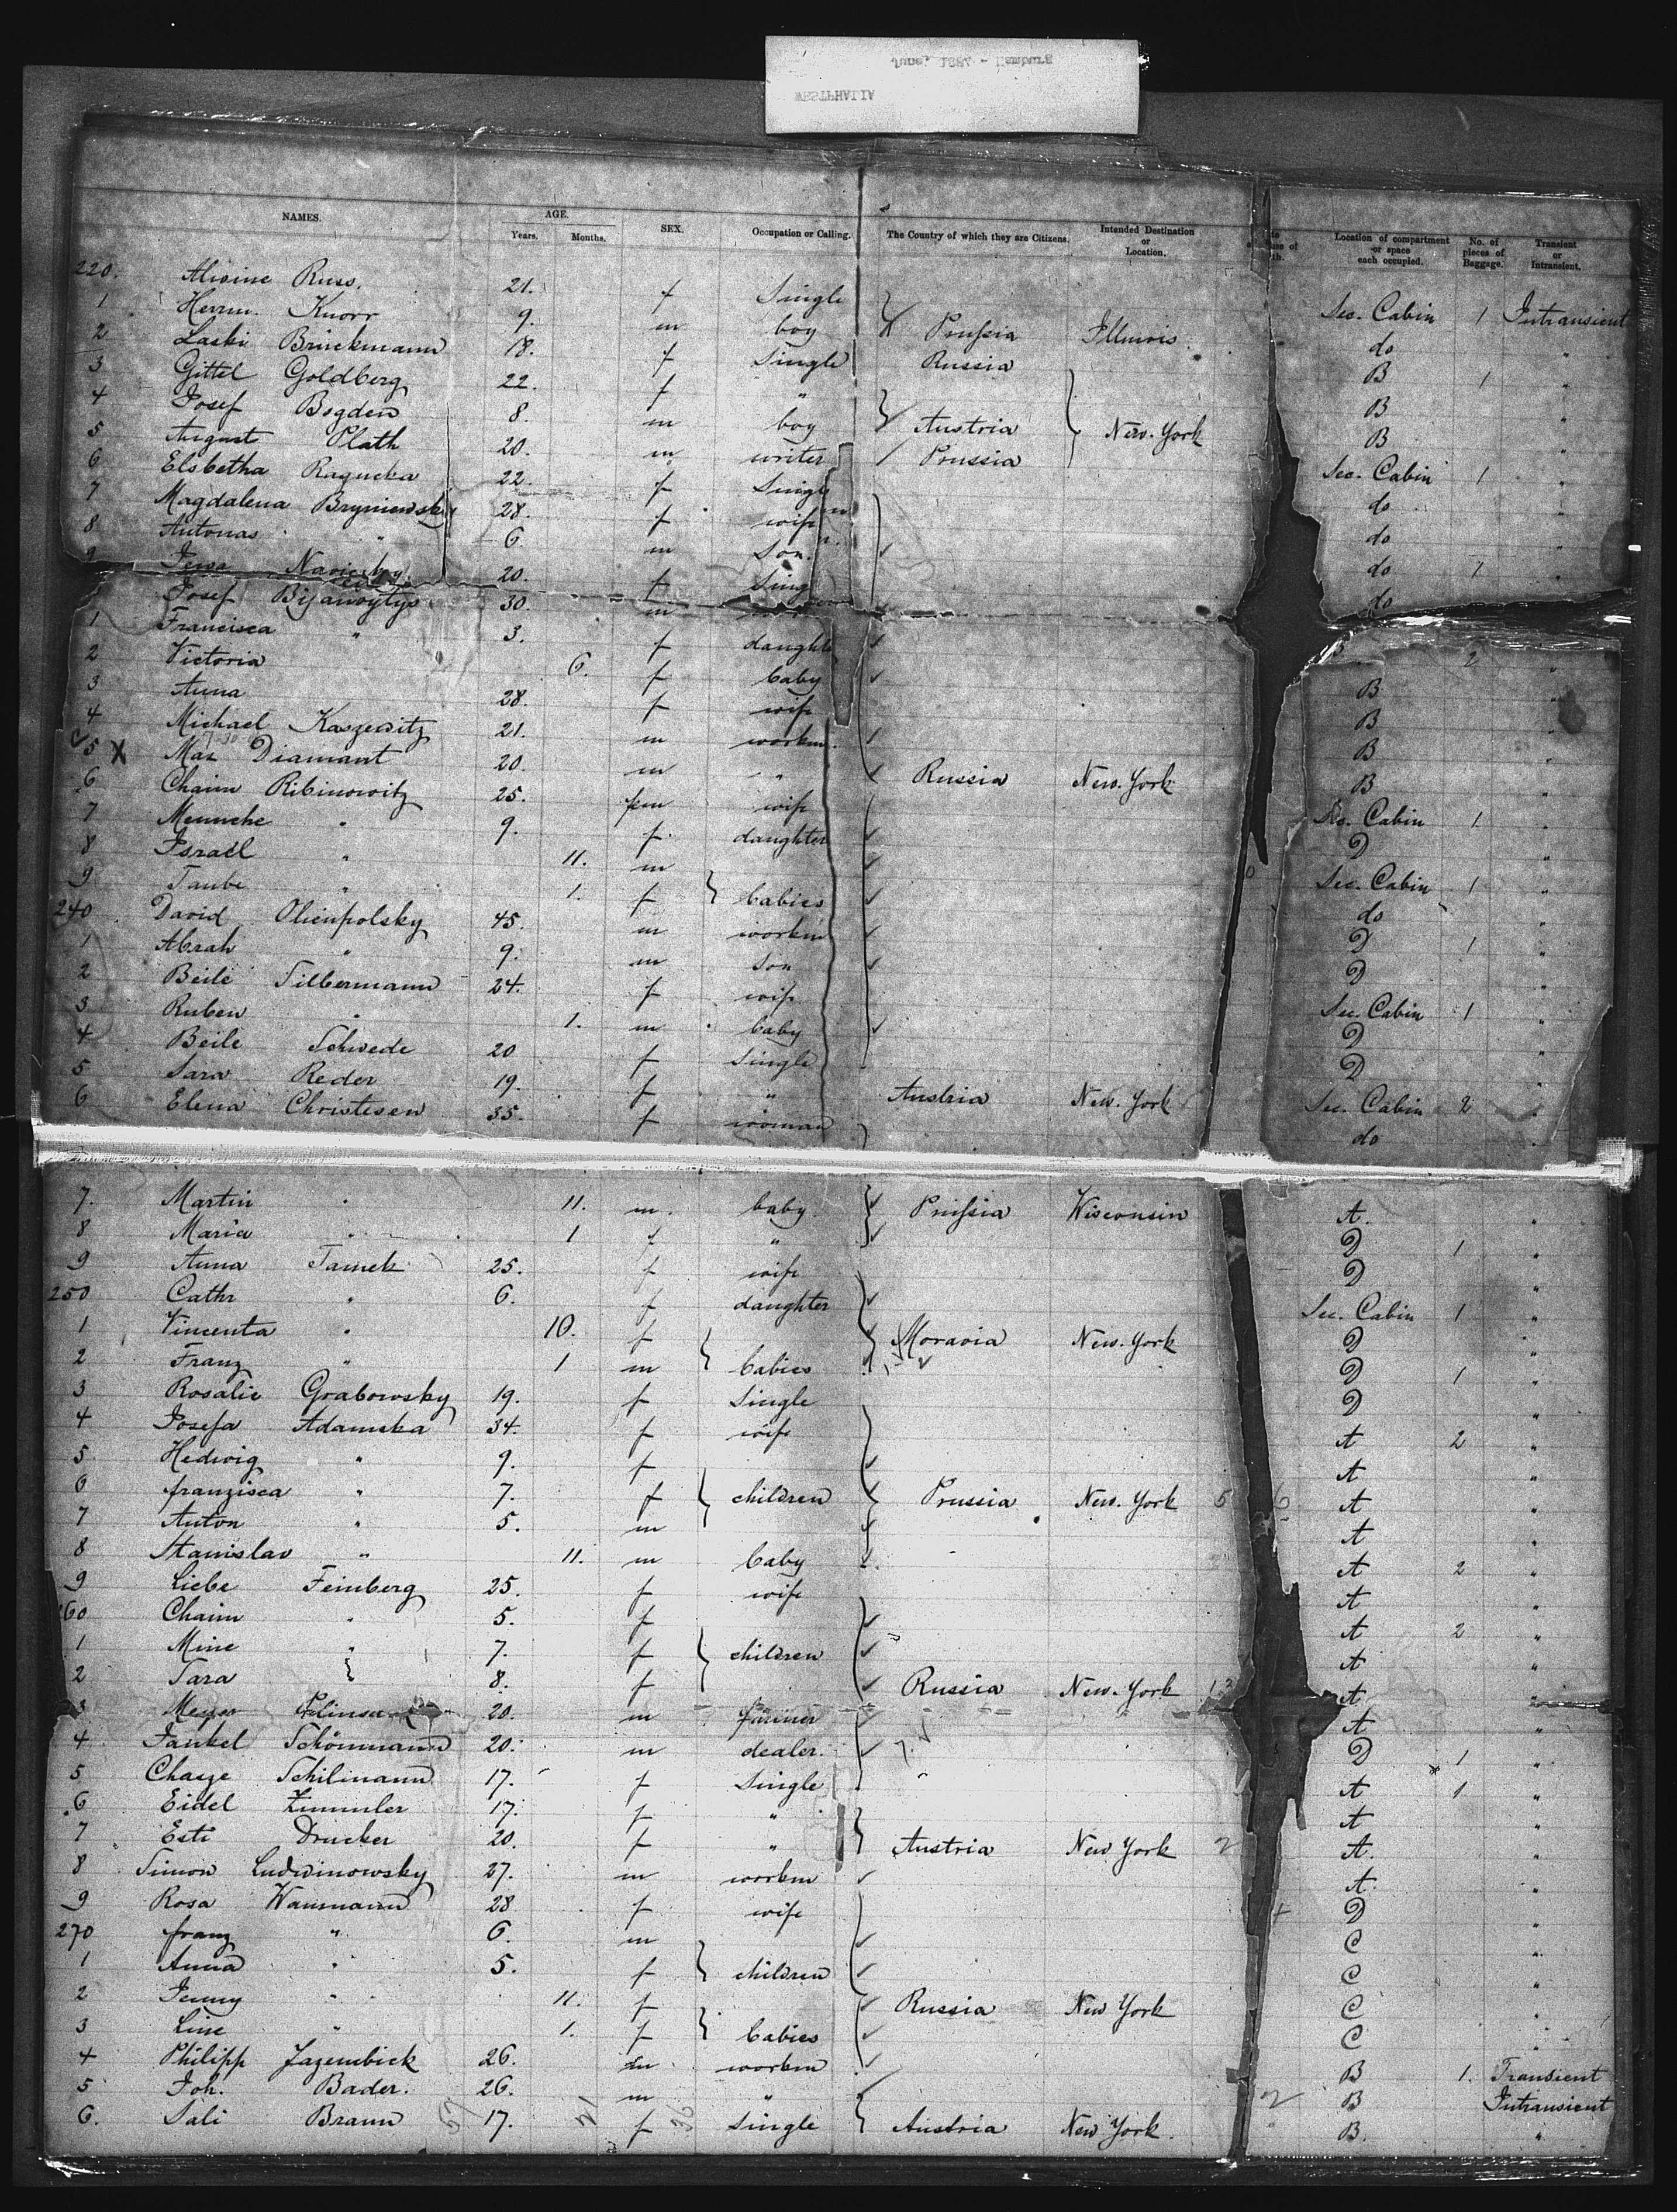 June, 1887 - Hamburg
WESTPHALIA
NAMES. AGE. SEX. Occupation or Calling. The Country of which they are Citizens. Intended Destination or Location. Location of compartment or space each occupied. No. of pieces of Baggage. Transient or Intransient.
Years. Months.
220. Alwine Russ. 21. f Single Sec. Cabin 1 Intransient
1 Herrm. Knorr 9. m boy Prussia Illinois do "
2 Laski Brinckmann 18. f Single Russia B 1 "
3 Gittel Goldberg 22. f " B "
4 Josef Bogden 8. m boy Austria New-York B "
5 August Plath 20. m writer Prussia Sec. Cabin 1 "
6 Elsbetha Ragucka 22. f Single do "
7 Magdalena Bryniewsky 28. f wife do "
8 Antonas " 6. m Son do 1 "
9 20. f Single do
Josef Bijanoytys 30. m
1 Francisca " 3. f daughte 2 "
2 Victoria 6. f baby B "
3 Anna 28. f wife B "
4 Michael Kaszewitz 21. m workm. B "
5 X Max Diamant 20. m " Russia New-York B "
6 Chaim Ribinowitz 25. fm wife Sec. Cabin 1 "
7 Mennche " 9. f. daughter D "
8 Israel " 11. m Sec. Cabin 1 "
9 Taube " 1. f babies do "
240 David Olienpolsky 45. m workm D 1 "
1 Abrah " 9. m Son D "
2 Beile Silbermann 24. f wife Sec. Cabin 1 "
3 Ruben " 1. m baby D "
4 Beile Schwede 20 f Single D "
5 Sara Reder 19. f " Austria New-York Sec. Cabin 2 "
6 Elena Christesen 35. f woman do
7. Martin " 11. m. baby Prussia Wisconsin A. "
8 Maria " 1 f " D 1 "
9 Anna Tamek 25. f wife D "
250 Cathr " 6. f daughter Sec. Cabin 1 "
1 Vincenta " 10. f Moravia New-York D "
2 Franz " 1 m babies D 1 "
3 Rosalie Grabowsky 19. f Single D "
4 Josefa Adamska 34. f wife A 2 "
5 Hedwig " 9. f A "
6 franzisca " 7. f children Prussia New-York 5 A "
7 Anton " 5. m A "
8 Stanislav " 11. m baby A 2 "
9 Liebe Feinberg 25. f wife A "
260 Chaim " 5. f A 2 "
1 Mine " 7. f children A "
2 Sara 8. f Russia New-York A "
3 Meyer 20. m farmer A "
4 Jankel Schönmann 20. m dealer D 1 "
5 Chasze Schilmann 17. f Single A 1 "
6 Eidel Zimmler 17. f " A "
7 Esti Drucker 20. f " Austria New York 2 A. "
8 Simon Ludwinowsky 27. m workm A. "
9 Rosa Wansmann 28 f wife D "
270 franz " 6. m C "
1 Anna " 5. f children C "
2 Jenny " 11. f Russia New York C "
3 Line " 1. f babies C "
4 Philipp Jazembick 26. m workm B 1. Transient
5 Joh. Bader. 26. m " B Intransient
6. Sali Braun 17. f Single Austria New York. B. "